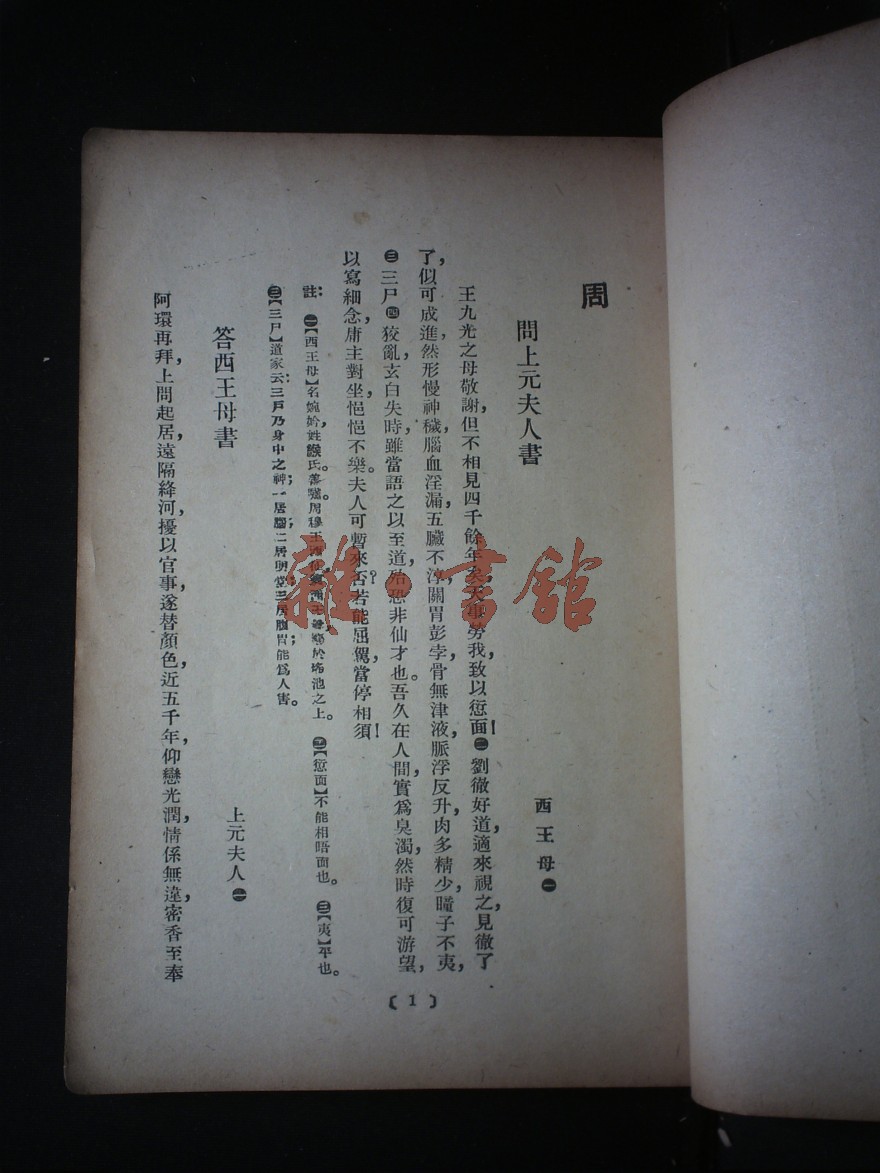 周
問上元夫人書
西王母㊀
王九光之母敬謝,但不相見四千餘年矣,天事勞我致以愆面!㊁劉徹好道,適來視之,見徹了
了,似可成進然形慢神穢,腦血淫漏,五臟不淳,關胃彭孛,骨無津液,脈浮反升,肉多精少,瞳子不夷,
㊂三尸㊃狡亂,玄白失時,雖當語之以至道,殆恐非仙才也。吾久在人間,實爲臭濁,然時復可游望,
以寫細念,庸主對坐,悒悒不樂。夫人可暫來否?若能屈駕,當停相須!
註:㊀【西王母】名婉妗,姓緱氏。善嘯。周穆王西於瑤池之上。㊁【愆面】不能相晤面也。㊂【夷】平也。
㊃【三尸】道家云:三尸乃身中之神;一居腦;二居明堂;三居腹胃;能爲人害。
答西王母書
上元夫人㊀
阿環再拜,上問起居,遠隔絳河,擾以官事,遂替顏色,近五千年,仰戀光潤,情係無違,密香至,奉
〔1〕
雜·書館